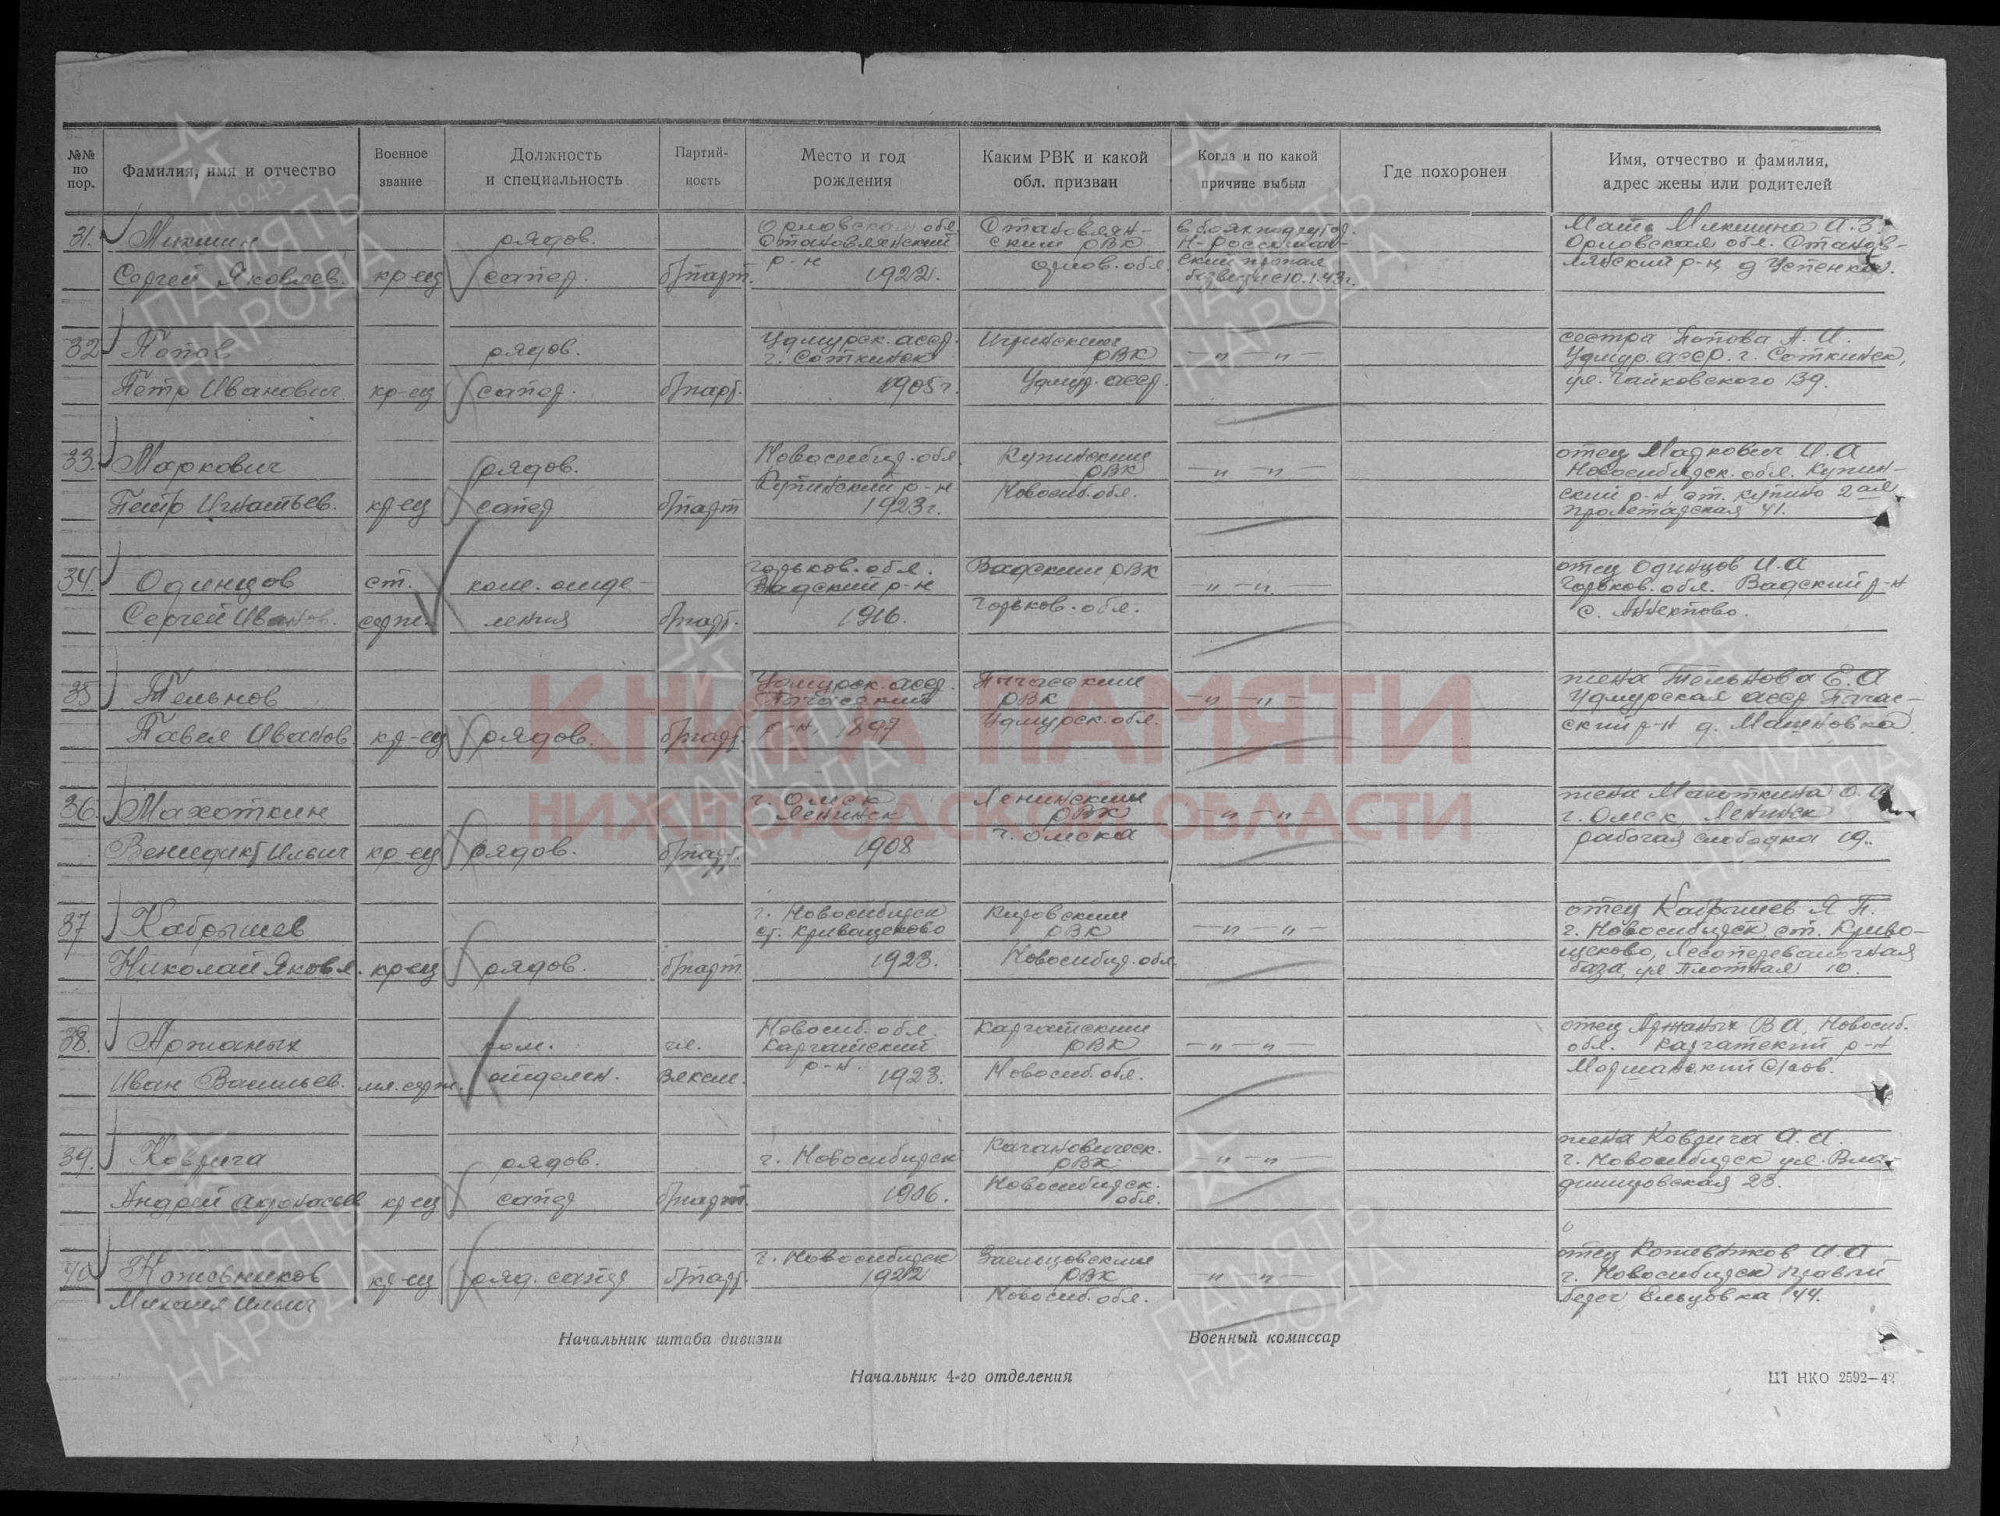 №№ по пор.
Фамилия, имя и отчество
Военное звание
Должность и специальность
Партий-ность
Место и год рождения
Каким РВК и какой обл. призван
Когда и по какой причине выбыл
Где похоронен
Имя, отчество и фамилия, адрес жены или родителей
31. Микшин Сергей Яковлев. кр-ец рядов. сапер. б/парт. Орловская обл. Становлянский р-н 1922г. Становлян-ский РВК орлов. обл. в боях под гор. Н-Россошан-ский пропал без вести с 10.1.43г. Мать Микшина А.З. Орловская обл. Станов-лянский р-н д Успенка.
32 Попов Петр Иванович. кр-ец рядов. сапер. б/парт. Удмурск. асср. г. Соткинск 1905г. РВК Удмур. асср. —„— „— сестра Попова А. И. Удмур. асср. г. Соткинск, ул. Чайковского 139.
33. Маркович Петр Игнатьев. кр-ец рядов. сапер б/парт Новосибир. обл. Купинский р-н 1923г. Купинский РВК Новосиб. обл. —„— „— отец Маркович И. А Новосибирск. обл. Купин-ский р-н ст. Купино 2ая Пролетарская 41.
34. Одинцов Сергей Иванов. ст. серж. ком. отде-ления б/парт. Горьков. обл. Вадский р-н 1916. Вадский РВК Горьков. обл. —„— „— отец Одинцов И. А Горьков. обл. Вадский р-н с.
35 Тельнов Павел Иванов кр-ец рядов. б/парт. Удмурск. асср. р-н 1897 РВК Удмурск. обл. —„— „— жена Тельнова Е. А Удмурская асср ский р-н д.
36. Махоткин Бенидикт Ильич кр-ец рядов. б/парт. г. Омск Ленинск 1908 Ленинский РВК г. Омска —„— „— жена Махоткина г. Омск Ленинск рабочая слободка 19.
37 Кабрышев Николай Яковл. кр-ец рядов. б/парт. г. Новосибирск ст. Кривощеково 1923. Кировский РВК Новосибир. обл. —„— „— отец Кабрышев Я П. г. Новосибирск ст. Криво-щеково, Лесоперевалочная база, ул Плотная 10.
38. Аржаных Иван Васильев. мл. серж. ком. отделен. чл. ВЛКСМ. Новосиб. обл. Каргатский р-н. 1923. Каргатский РВК Новосиб. обл. —„— „— отец Аржаных В А, Новосиб. обл. Каргатский р-н Маршанский с/сов.
39. Коврига Андрей Афонасьев кр-ец рядов. сапер б/парт. г. Новосибирск 1906. Кагановическ. РВК Новосибирск. обл. —„— „— жена Коврига А. г. Новосибирск ул. Вла-димировская 23.
40 Кожевников Михаил Ильич кр-ец ряд. сапер б/парт. г. Новосибирск 1922 Заельцовский РВК Новосиб. обл. „ — „ — отец Кожевников И. А г. Новосибирск правый берег Ельцовка 44.
Начальник штаба дивизии
Военный комиссар
Начальник 4-го отделения
ЦТ НКО 2592—42
КНИГА ПАМЯТИ
НИЖЕГОРОДСКОЙ ОБЛАСТИ
1941 1945
ПАМЯТЬ
НАРОДА